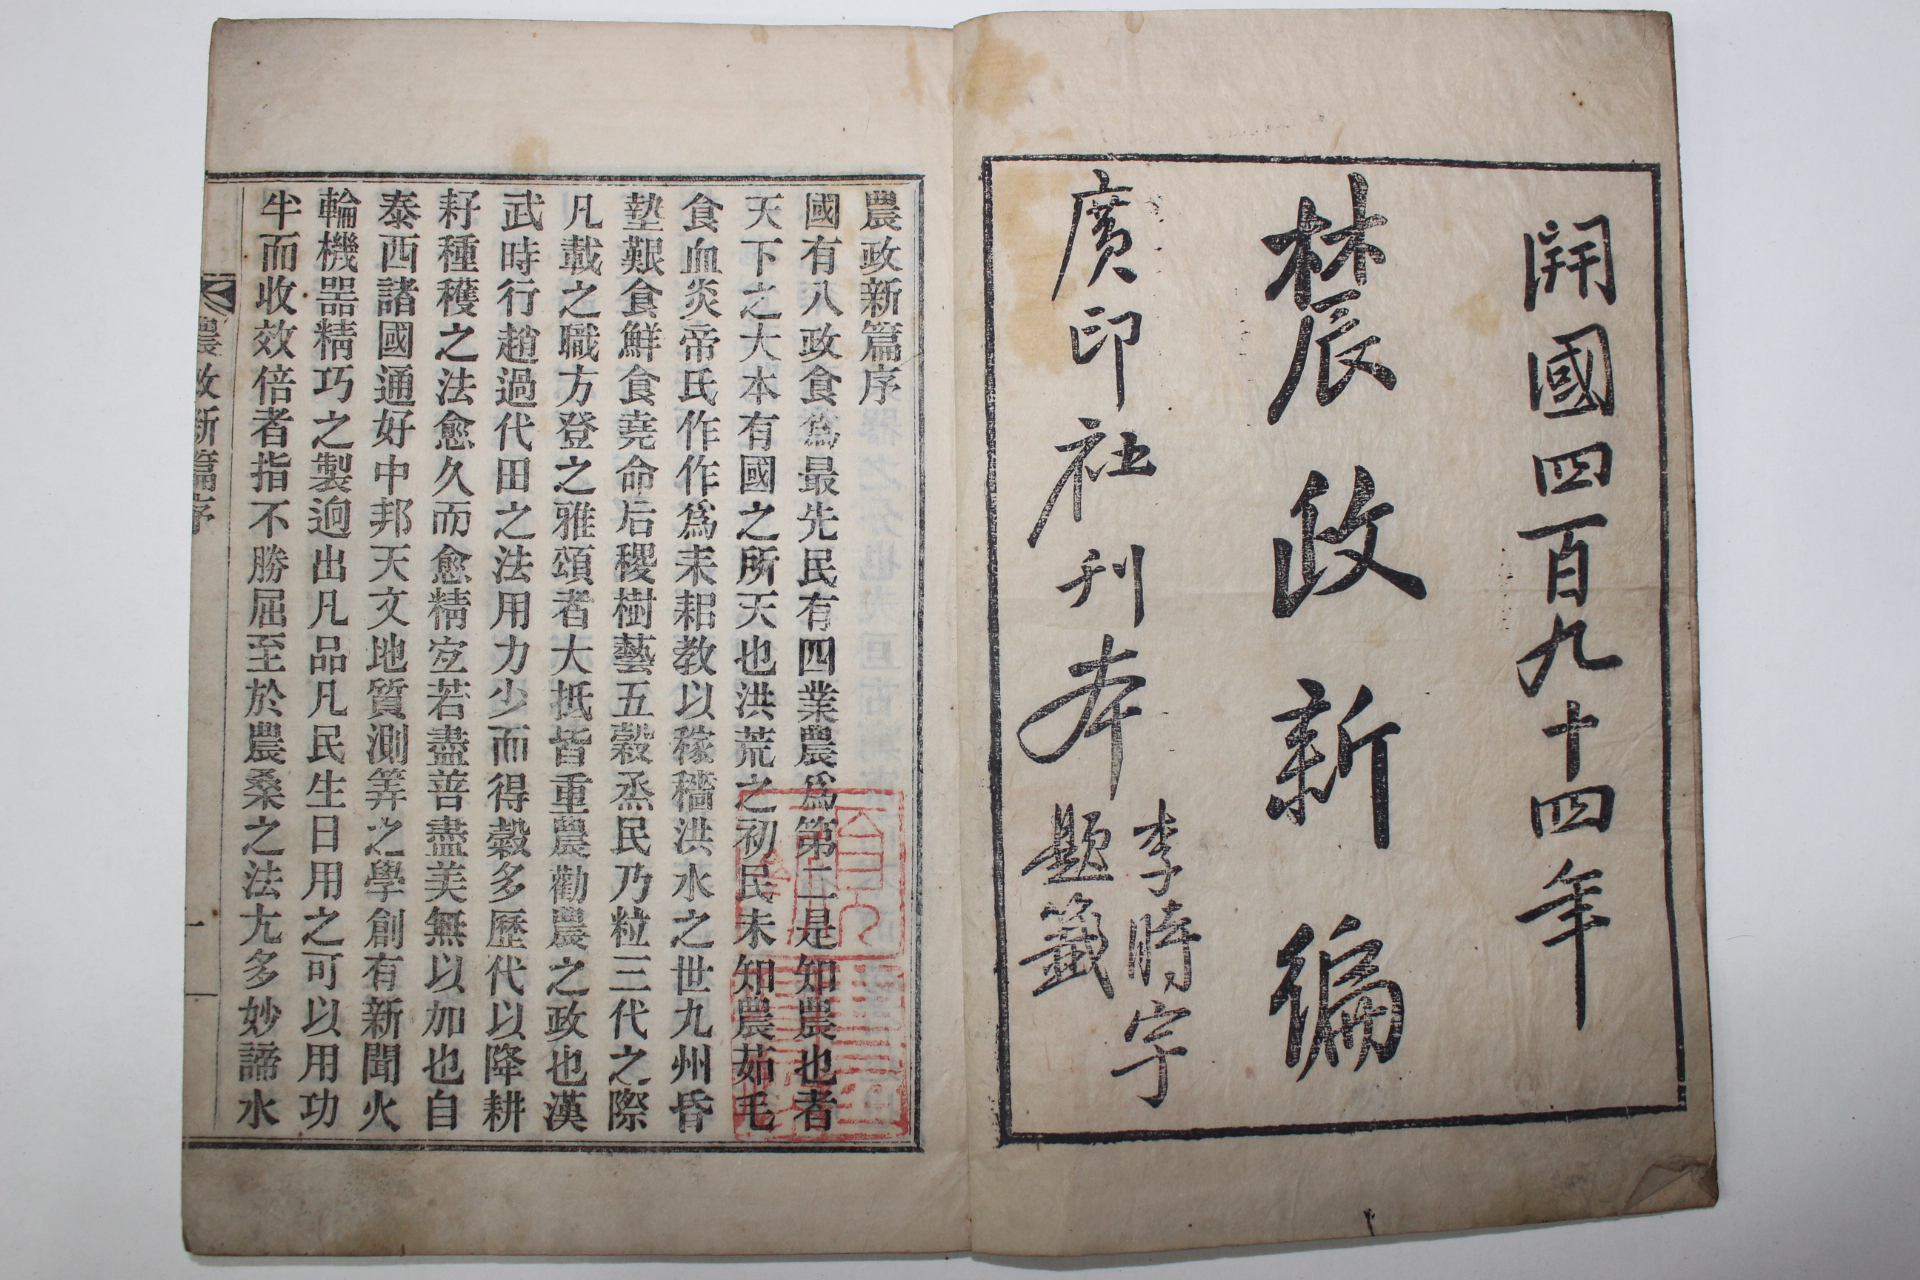 開國四百九十四年
農政新編
廣印社刊本
李時宇
題籤
農政新篇序
國有八政食爲最先民有四業農爲第二是知農也者
天下之大本有國之所天也洪荒之初民未知農茹毛
食血炎帝氏作作爲耒耜教以稼穡洪水之世九州昏
墊艱食鮮食堯命后稷樹藝五穀烝民乃粒三代之際
凡載之職方登之雅頌者大抵皆重農勸農之政也漢
武時行趙過代田之法用力少而得穀多歷代以降耕
耔種穫之法愈久而愈精宐若盡善盡美無以加也自
泰西諸國通好中邦天文地質測筭之學創有新聞火
輪機器精巧之製逈出凡品凡民生日用之可以用功
半而收效倍者指不勝屈至於農桑之法尢多妙諦水
農政新篇序
一